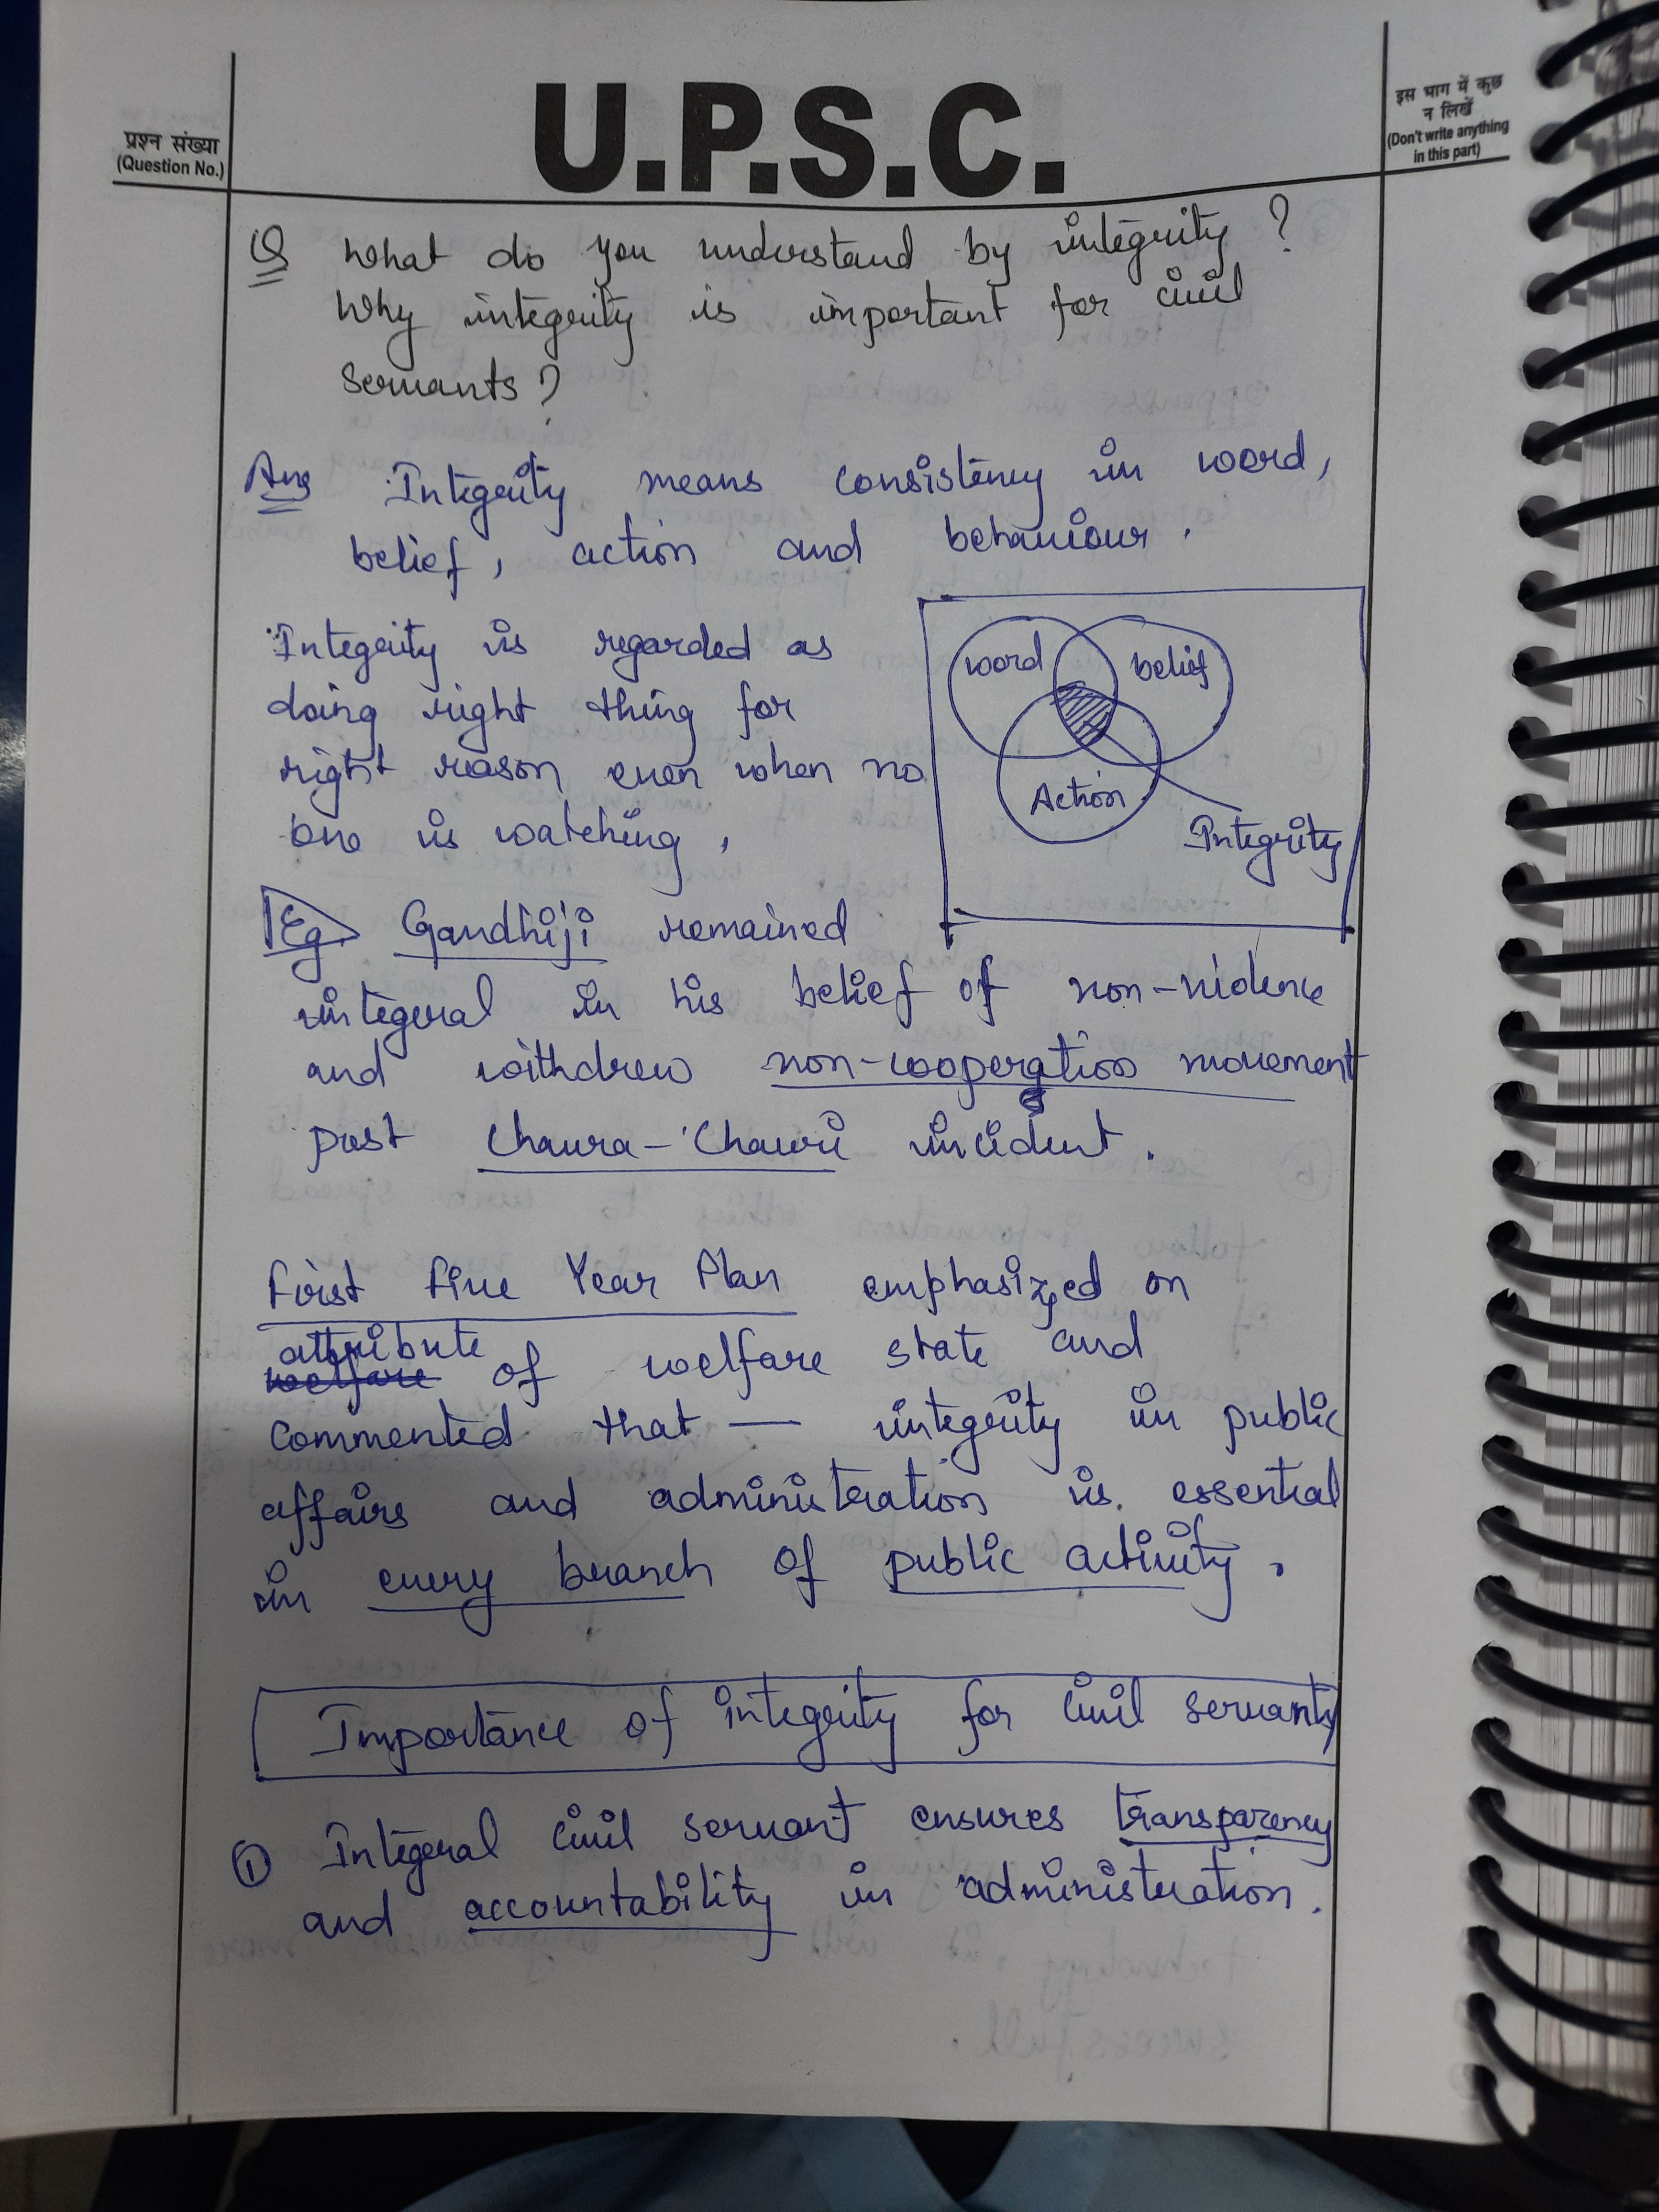 U.P.S.C.
प्रश्न संख्या
(Question No.)
इस भाग में कुछ
न लिखें
(Don't write anything
in this part)
Q What do you understand by integrity?
Why integrity is important for civil
servants?
Ans Integrity means consistency in word,
belief, action and behaviour.
Integrity is regarded as
doing right thing for
right reason even when no
one is watching.
word
belief
Action
Integrity
Eg. Gandhiji remained
integral in his belief of non-violence
and withdrew non-cooperation movement
post Chaura-Chauri incident.
First Five Year Plan emphasized on
attribute of welfare state and
commented that — integrity in public
affairs and administration is essential
in every branch of public activity.
Importance of integrity for civil servants
① Integral civil servant ensures transparency
and accountability in administration.